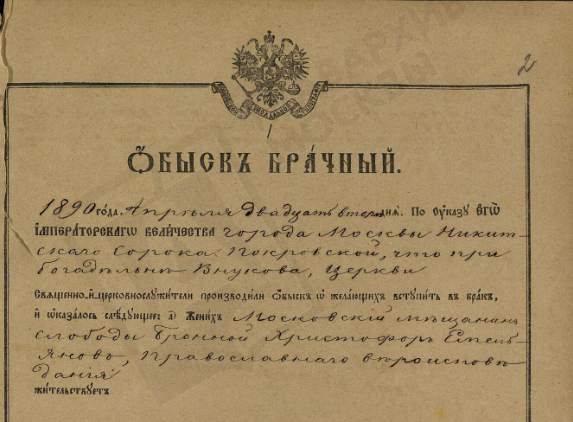 2
1
Ѻ҆БЫСКЪ БРА́ЧНЫЙ.
1890 го́да Апрѣля двадцать втор дня. По ᲂу҆ка́зу Є҆ГѠ̀
І҆МПЕРА́ТОРСКАГѠ ВЕЛИ́ЧЕСТВА города Москвы Никит-
скаго Сорока Покровской, что при
богадѣльни Внукова, Церкви
Свѧще́нно- и҆ церковнослѹжи́тели производи́ли Ѻ҆́быскъ ѡ҆ жела́ющихъ встѹпи́ть въ бра́къ,
и҆ ѡ҆каза́лось слѣ́дующее: а҃) Жени́хъ Московскій мѣщанинъ
слободы Бронной Христофоръ Емель-
яновъ, Православнаго вѣроисповѣ-
данія
жи́тельствуетъ